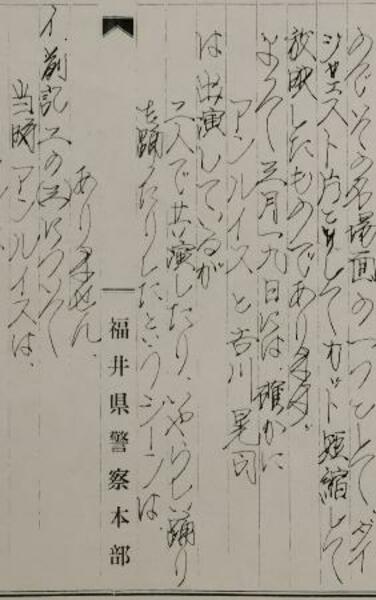 のでその名場面の一つとして、ダイ
ジェスト片としてカット短縮して
放映したものであります。
よって三月一九日には、確かに
アンルイスと吉川晃司
は出演しているが
二人で共演したり、いやらしい踊り
を踊ったりしたというシーンは、
ありません。
福井県警察本部
イ.前記二の(三)について
当時アンルイスは、